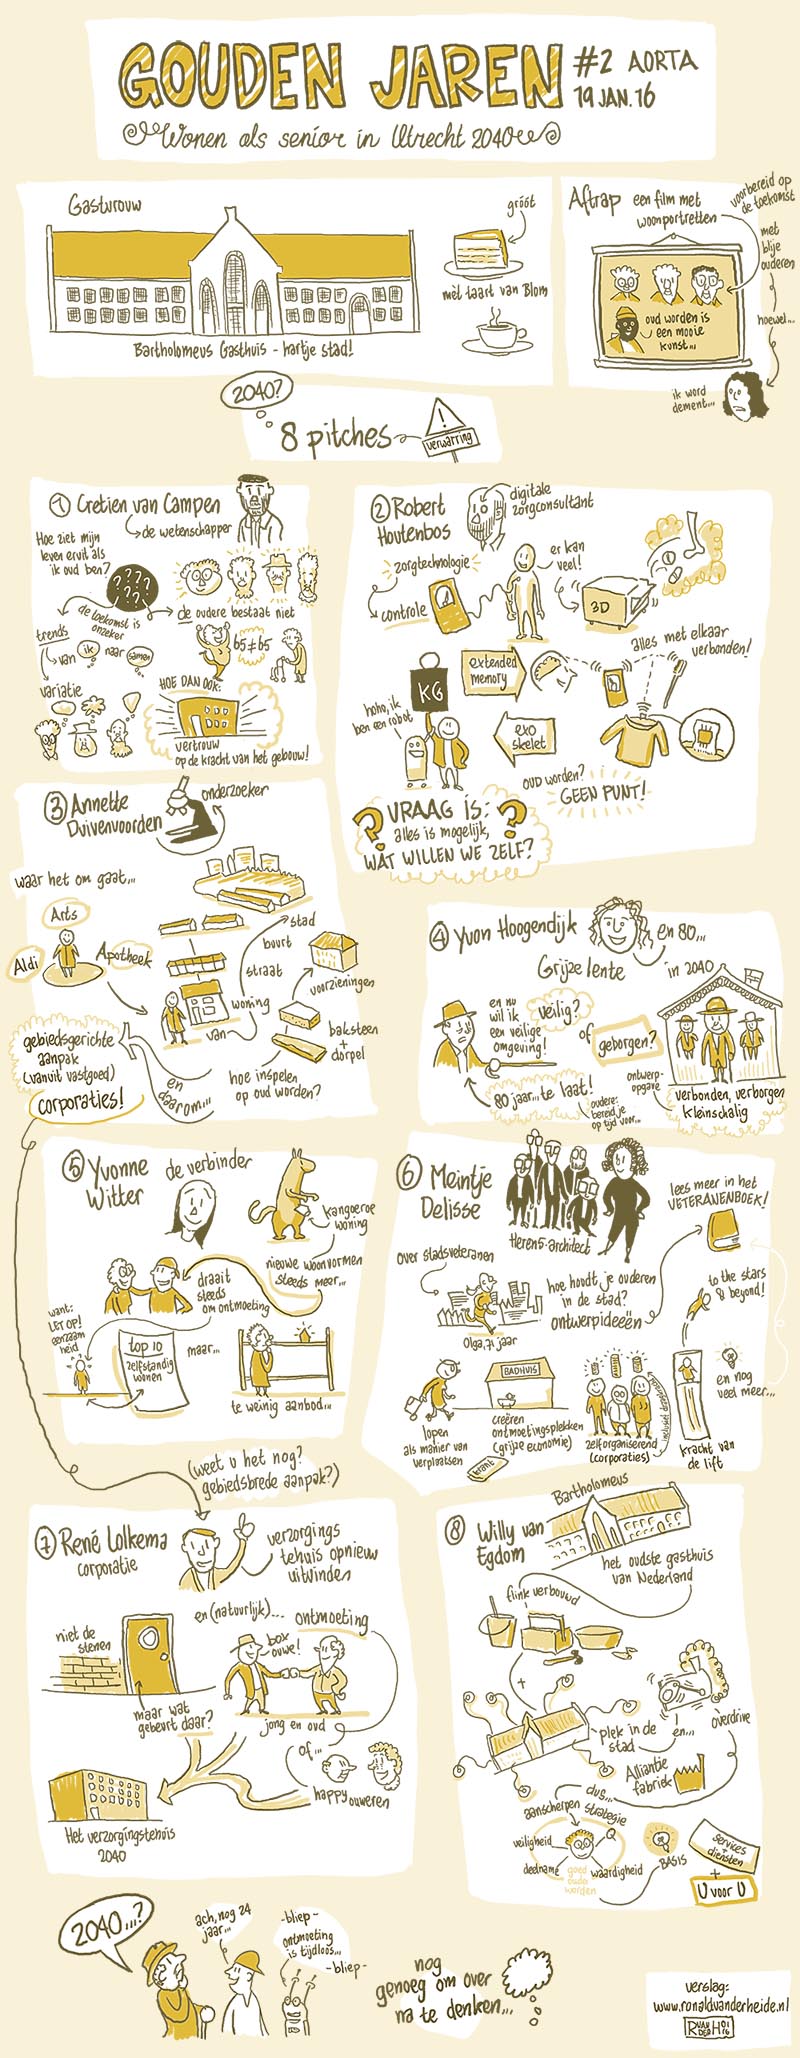 GOUDEN JAREN
#2 AORTA
19 JAN. '16
Wonen als senior in Utrecht 2040
Gastvrouw
gróót
mèt taart van Blom
Bartholomeus Gasthuis - hartje stad!
Aftrap een film met
woonportretten
voorbereid op
de toekomst
met
blije
ouderen
hoewel...
oud worden is
een mooie
kunst...
ik word
dement...
2040?
8 pitches
!
verwarring
1 Cretien van Campen
de wetenschapper
Hoe ziet mijn
leven eruit als
ik oud ben?
? ? ? ?
? ? ?
de toekomst is
onzeker
de oudere bestaat niet
trends
van ik naar samen
65 ≠ 65
variatie
HOE DAN OOK:
vertrouw
op de kracht van het gebouw!
2 Robert
Houtenbos
digitale
zorgconsultant
zorgtechnologie
controle
er kan
veel!
3D
alles met elkaar
verbonden!
KG
extended
memory
hoho, ik
ben een robot
exo
skelet
oud worden?
GEEN PUNT!
? VRAAG IS: ?
alles is mogelijk,
WAT WILLEN WE ZELF?
3 Annette
Duivenvoorden
onderzoeker
waar het om gaat...
Arts
Aldi
Apotheek
stad
buurt
straat
woning
van
voorzieningen
baksteen
+
dorpel
hoe inspelen
op oud worden?
en
daarom...
gebiedsgerichte
aanpak
(vanuit vastgoed)
corporaties!
4 Yvon Hoogendijk
en 80...
Grijze lente
in 2040
en nu
wil ik
een veilige
omgeving!
veilig?
of
geborgen?
80 jaar... te laat!
oudere:
bereid je
op tijd voor...
ontwerp-
opgave
verbonden, verborgen
kleinschalig
5 Yvonne
Witter
de verbinder
kangoeroe
woning
nieuwe woonvormen
steeds meer...
draait
steeds
om ontmoeting
want:
LET OP!
eenzaam
heid
top 10
zelfstandig
wonen
maar...
te weinig aanbod...
6 Meintje
Delisse
Heren5-architect
lees meer in het
VETERANENBOEK!
over stadsveteranen
Olga, 71 jaar
hoe houdt je ouderen
in de stad?
ontwerpideeën
to the stars
& beyond!
BADHUIS
lopen
als manier van
verplaatsen
creëren
ontmoetingsplekken
(grijze economie)
krant
zelforganiserend
(corporaties)
kracht van
de lift
en nog
veel meer...
(weet u het nog?
gebiedsbrede aanpak?)
7 René Lolkema
corporatie
verzorgings
tehuis opnieuw
uitvinden
en (natuurlijk)... ontmoeting
niet de
stenen
maar wat
gebeurt daar?
box
ouwe!
jong en oud
of...
happy ouweren
Het verzorgingstehuis
2040
8 Willy van
Egdom
Bartholomeus
het oudste gasthuis
van Nederland
flink verbouwd
+
plek in de
stad
en...
overdrive
Alliantie
fabriek
dus...
aanscherpen strategie
veiligheid
deelname
waardigheid
goed
oud
worden
BASIS
services
+
diensten
+
U voor U
2040...?
ach, nog 24
jaar...
-bliep-
ontmoeting
is tijdloos...
-bliep-
nog
genoeg om over
na te denken...
verslag:
www.ronaldvanderheide.nl